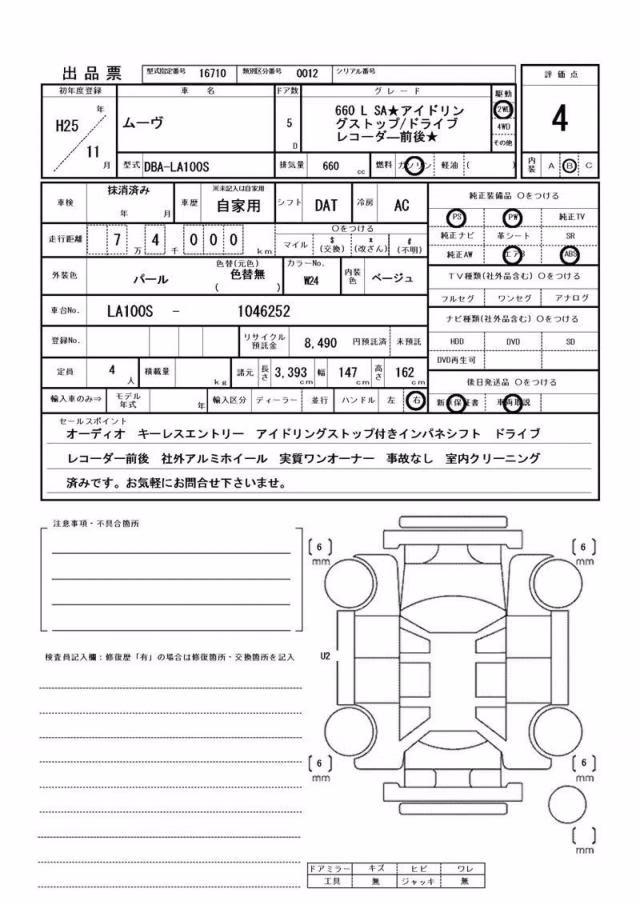 出品票 型式指定番号 16710 類別区分番号 0012 シリアル番号
評価点
初年度登録 車名 ドア数 グレード 駆動
H25 年 11 月
ムーヴ
5 D
660 L SA★アイドリン
グストップ/ドライブ
レコーダ―前後★
2WD
4WD
その他
4
型式 DBA-LA100S 排気量 660 cc 燃料 ガソリン 軽油 ( ) 内装 A B C
車検 抹消済み 年 月 車歴 ※未記入は自家用 自家用 シフト DAT 冷房 AC
純正装備品 〇をつける
PS PW 純正TV
純正ナビ 革シート SR
純正AW エアB ABS
走行距離 7 万 4 千 0 0 0 km
〇をつける
マイル $ (交換) x (改ざん) # (不明)
外装色 パール 色替(元色) 色替無 ( ) カラーNo. W24 内装色 ベージュ
TV種類(社外品含む) 〇をつける
フルセグ ワンセグ アナログ
車台No. LA100S - 1046252
ナビ種類(社外品含む) 〇をつける
HDD DVD SD
DVD再生可
登録No. リサイクル預託金 8,490 円預託済 未預託
定員 4 人 積載量 kg 諸元 長さ 3,393 cm 幅 147 cm 高さ 162 cm
後日発送品 〇をつける
新車保証書 車両取説
輸入車のみ⇒ モデル年式 年 輸入区分 ディーラー 並行 ハンドル 左 右
セールスポイント
オーディオ キーレスエントリー アイドリングストップ付きインパネシフト ドライブ
レコーダー前後 社外アルミホイール 実質ワンオーナー 事故なし 室内クリーニング
済みです。お気軽にお問合せ下さいませ。
注意事項・不具合箇所
( 6 ) mm
( 6 ) mm
検査員記入欄：修復歴「有」の場合は修復箇所・交換箇所を記入
U2
( 6 ) mm
( 6 ) mm
( ) mm
ドアミラー キズ ヒビ ワレ
工具 無 ジャッキ 無